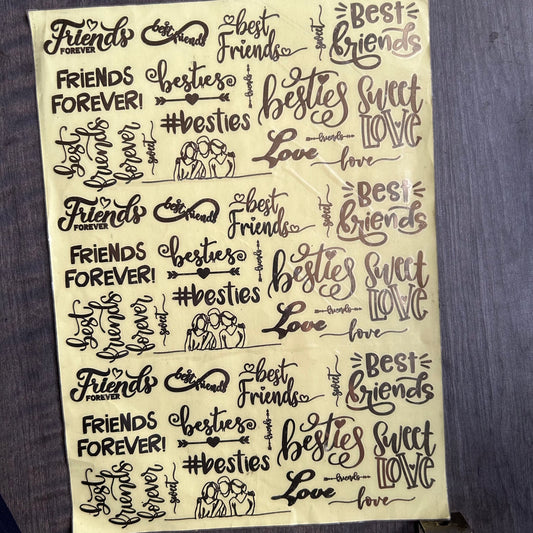 Friends
FOREVER
best friends
best
Friends
sweet
Best
friends
FRIENDS
FOREVER!
besties
friends
besties
Sweet
LOVE
best
friends
forever
sweet
#besties
Love
friends
love
Friends
FOREVER
best friends
best
Friends
sweet
Best
friends
FRIENDS
FOREVER!
besties
friends
besties
Sweet
LOVE
best
friends
forever
sweet
#besties
Love
friends
love
Friends
FOREVER
best friends
best
Friends
sweet
Best
friends
FRIENDS
FOREVER!
besties
friends
besties
Sweet
LOVE
best
friends
forever
sweet
#besties
Love
friends
love